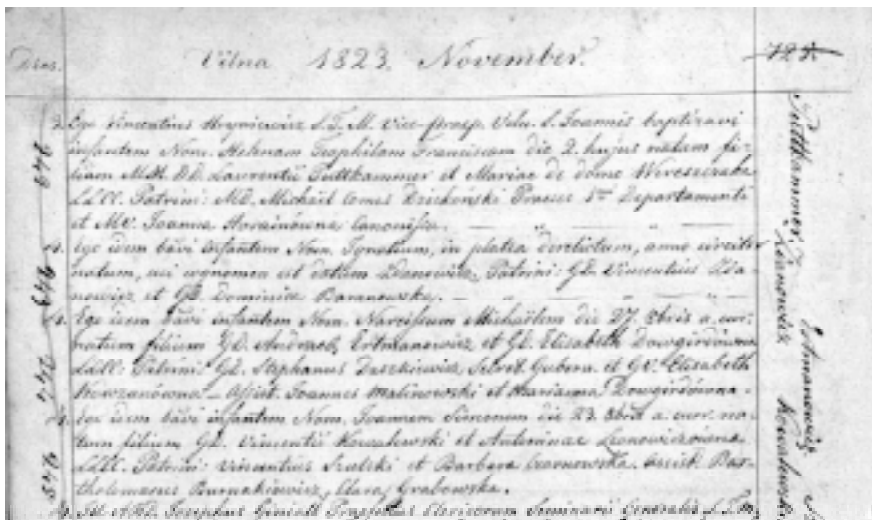 Dies. Vilna 1823. November. 124
3. Ego Vincentius Hryniewicz S. T. M. Vice-Praep. Viln. S. Joannis baptizavi
infantem Nom. Helenam Theophilam Franciscam die 2. hujus natam fi-
liam M.M. D.D. Laurentii Puttkammer et Mariae de domo Wereszczaka
LLCC. Patrini: MD. Michael Comes Praeses Departamenti
et MV. Joanna Horainówna Canonissa.
Ego idem bavi infantem Nom. Ignatium, in platea derelictum, anno circiter
natum, cui cognomen est Zdanowicz. Patrini: GD. Vincentius Zda-
nowicz et GD. Dominica Baranowska.
Ego idem bavi infantem Nom. Narcissum Michaëlem die 27. 8bris a. curr.
natum filium GD. Andreae Ertmanowicz et GD. Elisabeth Dowgirdówna
LLCC. Patrini: GD. Stephanus Daszkiewicz Secret. Gubern. et GV. Elisabeth
Assist. Joannes Malinowski et Marianna Dowgirdówna.
Ego idem bavi infantem Nom. Joannem Simonem die 23. 8bris a. curr. na-
tum filium GD. Vincentii Kowalewski et Antoninae Leonowiczówna
LLCC. Patrini: Vincentius et Barbara Czarnowska. Assist. Bar-
tholomaeus Burnakiewicz, Clara Grabowska.
Josephus Praepositus Clericorum Seminarii Generalis S. T. M.
242
243
244
245
Puttkammer.
Zdanowicz
Ertmanowicz
Kowalewski